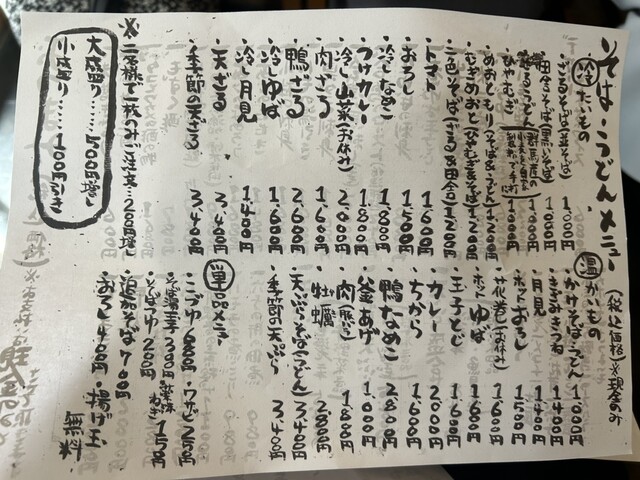 そば・うどんメニュー
(税込価格)※現金のみ
冷たいもの
・ざるそば(並そば) 1,000円
・田舎そば(黒いそば) 1,000円
・ひやむぎ 1,000円
・めおともり(そば&うどん) 1,200円
・むぎめおと(ひやむぎ&そば) 1,200円
・二色そば(ざる&田舎) 1,200円
・トマト 1,600円
・おろし 1,500円
・冷しなめこ 1,800円
・つけカレー 1,800円
・冷し山菜(お休み) 2,000円
・肉ざる 1,600円
・鴨ざる 2,600円
・冷しゆば 1,600円
・冷し月見 1,400円
・天ざる 3,400円
・季節の天ざる 3,400円
※二名様で一枚のみご注文…200円増し
大盛り……500円増し
小盛り……100円引き
温かいもの
・かけそば・うどん 1,000円
・きざみきつね 1,400円
・月見 1,400円
・ホットおろし 1,500円
・花巻(お休み) 1,600円
・ホットゆば 1,600円
・玉子とじ 1,600円
・カレー 2,000円
・ちから 1,600円
・鴨なめこ 2,800円
・釜あげ 1,000円
・肉(豚バラ) 1,800円
・牡蠣 2,800円
・天ぷらそば(うどん) 3,400円
・季節の天ぷら 3,400円
単品メニュー
・こづゆ 600円 ・ワサビ 250円
・そばつゆ 200円 ・薬味ねぎ 150円
・追加そば 700円
・おろし 400円 ・揚げ玉 無料